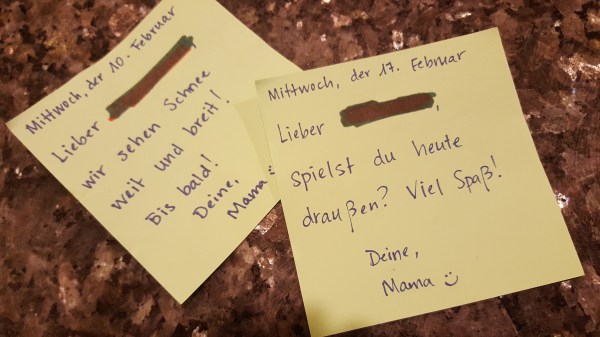 Mittwoch, der 10. Februar
Lieber
wir sehen Schnee
weit und breit!
Bis bald!
Deine,
Mama
Mittwoch, der 17. Februar
Lieber ,
spielst du heute
draußen? Viel Spaß!
Deine,
Mama :)